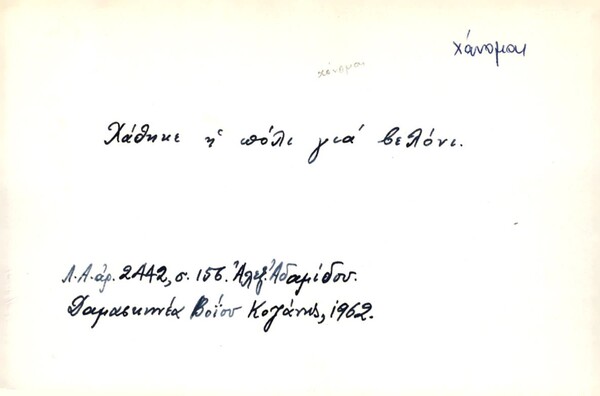 χάνομαι
χάνομαι
Χάθηκε ἡ πόλι γιά βελόνι.
Λ.Α. ἀρ. 2442, σ. 156. Ἀλεξ. Ἀδαμίδου.
Δαμασκηνέα Βοΐου Κοζάνης, 1962.